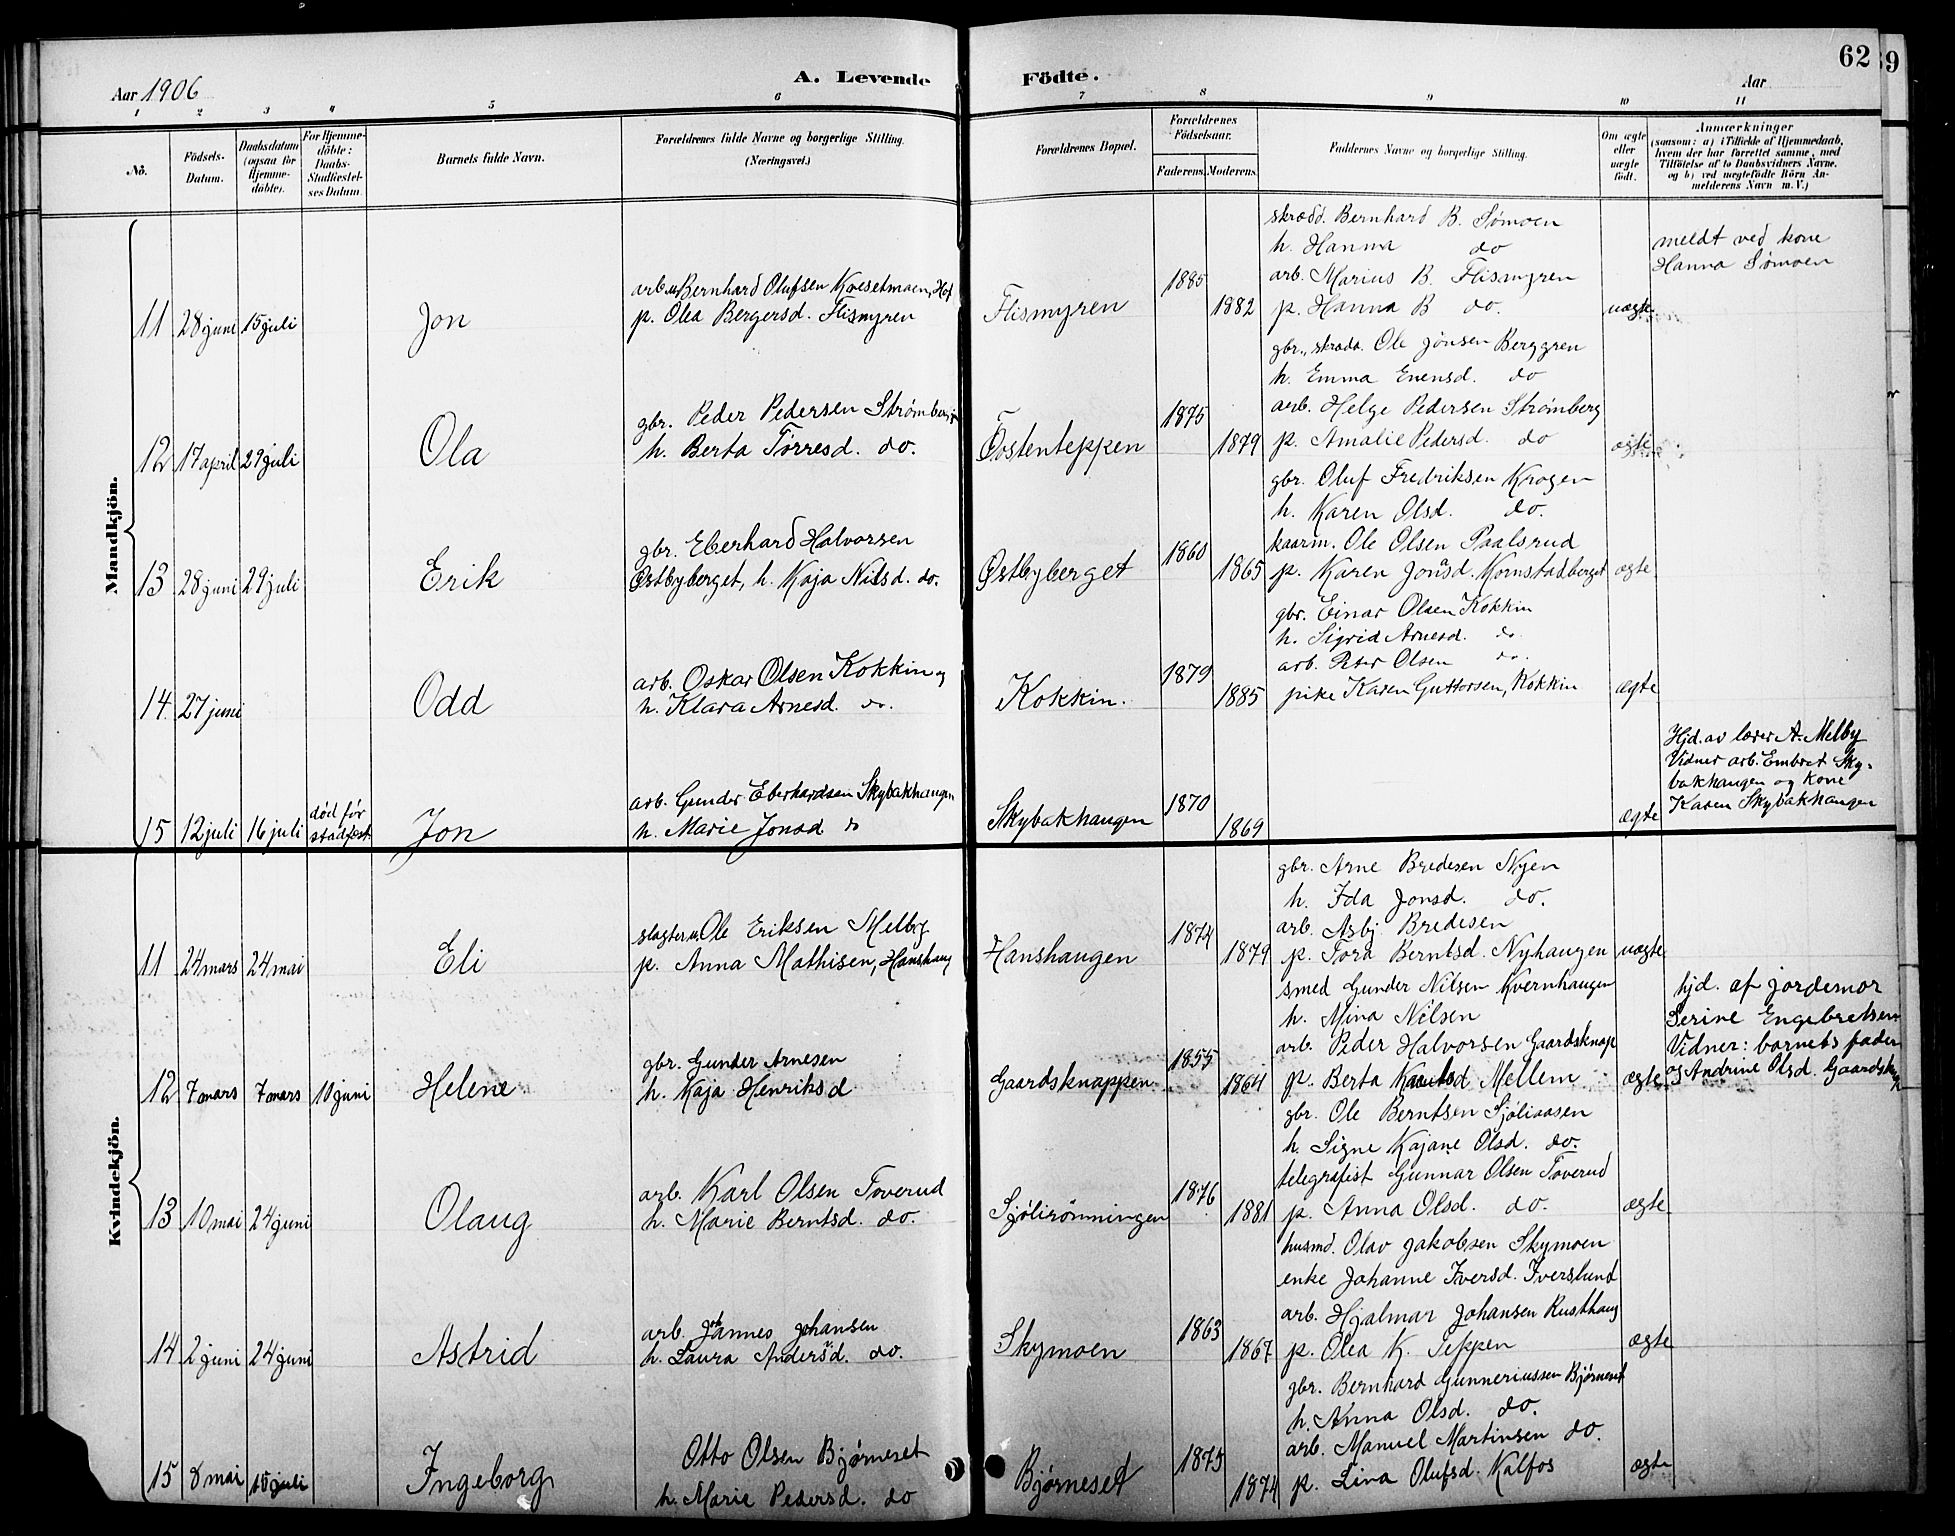 62
39
Aar 1906
A. Levende Födte.
Aar
1 2 3 4 5 6 7 8 9 10 11
No.
Födsels-
Datum.
Daabsdatum
(ogsaa for
Hjemme-
döbte).
For Hjemme-
döbte:
Daabs-
Stadfæstel-
ses Datum.
Barnets fulde Navn.
Forældrenes fulde Navne og borgerlige Stilling.
(Næringsvei.)
Forældrenes Bopæl.
Forældrenes
Födselsaar.
Faderens. Moderens.
Faddernes Navne og borgerlige Stilling.
Om ægte
eller
uægte
födt.
Anmærkninger
(saasom: a) i Tilfælde af Hjemmedaab,
hvem der har forrettet samme, med
Tilföielse af to Daabsvidners Navne.
og b) ved uægtefödte Börn An-
melderens Navn m. V.)
Mandkjön.
11 28 juni 15 juli
Jon
arb. u. Bernhard Olufsen Kvesetmoen, Hof
p. Olea Bergersd. Flismyren
Flismyren
1885
1882
skrædd. Bernhard B. Sømoen
h. Hanna do
arb. Marius B. Flismyren
p. Hanna B do.
uægte
meldt ved kone
Hanna Sømoen
12 17 april 29 juli
Ola
gbr. Peder Pedersen Strømberg
h. Berta Tørresd. do.
Tostenteppen
1875
1879
gbr., skrædd. Ole Jønsen Berggren
h. Emma Enensd. do
arb. Helge Pedersen Strømberg
p. Amalie Pedersd. do
ægte
13 28 juni 29 juli
Erik
gbr. Eberhard Halvorsen
Østbyberget, h. Kaja Nilsd. do.
Østbyberget
1860
1865
gbr. Oluf Fredriksen Krogen
h. Karen Olsd. do.
kaarm. Ole Olsen Paalsrud
p. Karen Jonsd. Kornstadberget
ægte
14. 27 juni
Odd
arb. Oskar Olsen Kokkin og
h. Klara Arnesd. do.
Kokkin.
1879
1885
gbr. Einar Olsen Kokkin
h. Sigrid Arnesd. do.
arb. Peter Olsen do.
pike Karen Guttorsen, Kokkin
ægte
15 12 juli 16 juli
død før
stadfest
Jon
arb. Gunder Eberhardsen Skybakhaugen
h. Marie Jonsd do
Skybakhaugen
1870
1869
ægte
Hjd. av lærer A. Melby
Vidner arb. Embret Sky-
bakhaugen og kone
Karen Skybakhaugen
Kvindekjön.
11 24 mars 24 mai
Eli
slagter u. Ole Eriksen Melby
p. Anna Mathisen, Hanshaug
Hanshaugen
1874
1879
gbr. Arne Bredesen Nyen
h. Ida Jonsd. do.
arb. Asbj. Bredesen
p. Tora Berntsd. Nyhaugen
uægte
12 7 mars 7 mars 10 juni
Helene
gbr. Gunder Arnesen
h. Kaja Henriksd
Gaardsknappen
1855
1864
smed Gunder Nilsen Kvernhaugen
h. Mina Nilsen
arb. Peder Halvorsen Gaardsknap
p. Berta Knutsd Mellem
ægte
hjd. af jordemor
Serine Engebretsen
Vidner: barnets fader
og Andrine Olsd. Gaardsknap
13 10 mai 24 juni
Olaug
arb. Karl Olsen Toverud
h. Marie Berntsd. do.
Sjølirønningen
1876
1881
gbr. Ole Berntsen Sjøliaasen
h. Signe Kajane Olsd. do.
telegrafist Gunnar Olsen Toverud
p. Anna Olsd. do.
ægte
14 2 juni 24 juni
Astrid
arb. Johannes Johansen
h. Laura Andersd. do.
Skymoen
1863
1867
husmd. Olav Jakobsen Skymoen
enke Johanne Iversd. Iverslund
arb. Hjalmar Johansen Rusthaug
p. Olea K. Teppen
ægte
15 8 mai 15 juli
Ingeborg
Otto Olsen Bjørneset
h. Marie Pedersd. do
Bjørneset
1875
1874
gbr. Bernhard Gunneriussen Bjørneset
h. Anna Olsd. do.
arb. Manuel Martinsen do.
p. Lina Olufsd. Kalfos
ægte